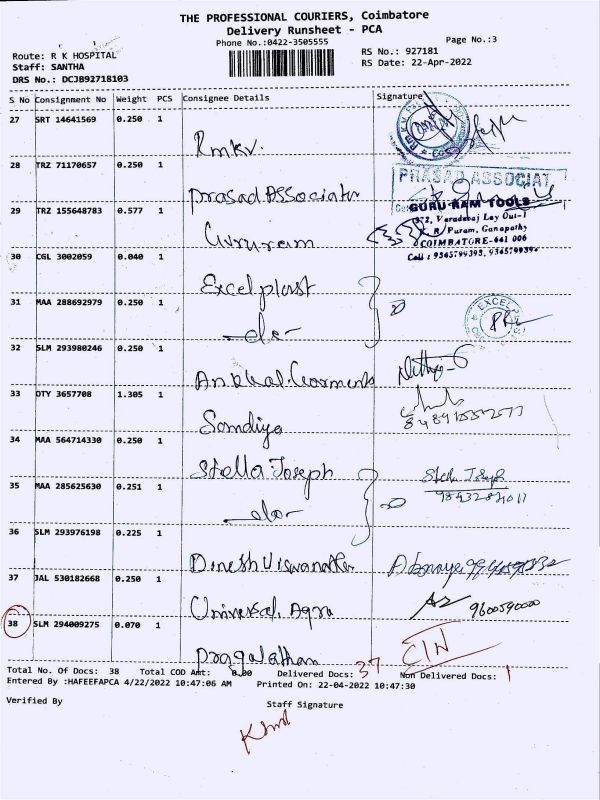 THE PROFESSIONAL COURIERS, Coimbatore
Delivery Runsheet - PCA
Phone No.:0422-3505555
Page No.:3
Route: R K HOSPITAL
Staff: SANTHA
DRS No.: DCJB92718103
RS No.: 927181
RS Date: 22-Apr-2022
S No Consignment No Weight PCS Consignee Details Signature
27 SRT 14641569 0.250 1
Rmkv.
28 TRZ 71170657 0.250 1
Prasad Associate
PRASAD ASSOCIAT
29 TRZ 155648783 0.577 1
Gururam
GURU RAM TOOLS
372, Varadaraj Lay Out-1
K R Puram, Ganapathy
COIMBATORE-641 006
Cell : 9365799393, 9365799394
30 CGL 3002059 0.040 1
Excel plast
31 MAA 288692979 0.250 1
-do-
EXCEL
32 SLM 293980246 0.250 1
Garments
33 OTY 3657708 1.305 1
Sandiya
34 MAA 564714330 0.250 1
Stella Joseph
35 MAA 285625630 0.251 1
-do-
36 SLM 293976198 0.225 1
Dinesh Viswanathan
37 JAL 530182668 0.250 1
Universal Agra
9600590000
38 SLM 294009275 0.070 1
Pragalathan
Total No. Of Docs: 38 Total COD Amt: 0.00 Delivered Docs: 37 Non Delivered Docs: 1
Entered By :HAFEEFAPCA 4/22/2022 10:47:06 AM Printed On: 22-04-2022 10:47:30
Verified By
Staff Signature